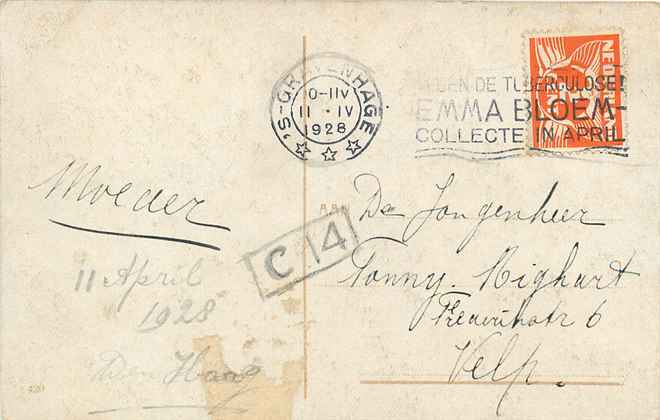 'S-GRAVENHAGE
10-11V
11 .IV
1928
TEGEN DE TUBERCULOSE!
EMMA BLOEM-
COLLECTE IN APRIL
NEDERLAND
Moeder
11 April
1928
Den Haag
C 14
AAN
De Jongenheer
Tonny. Nighart
Frederikstr 6
Velp.